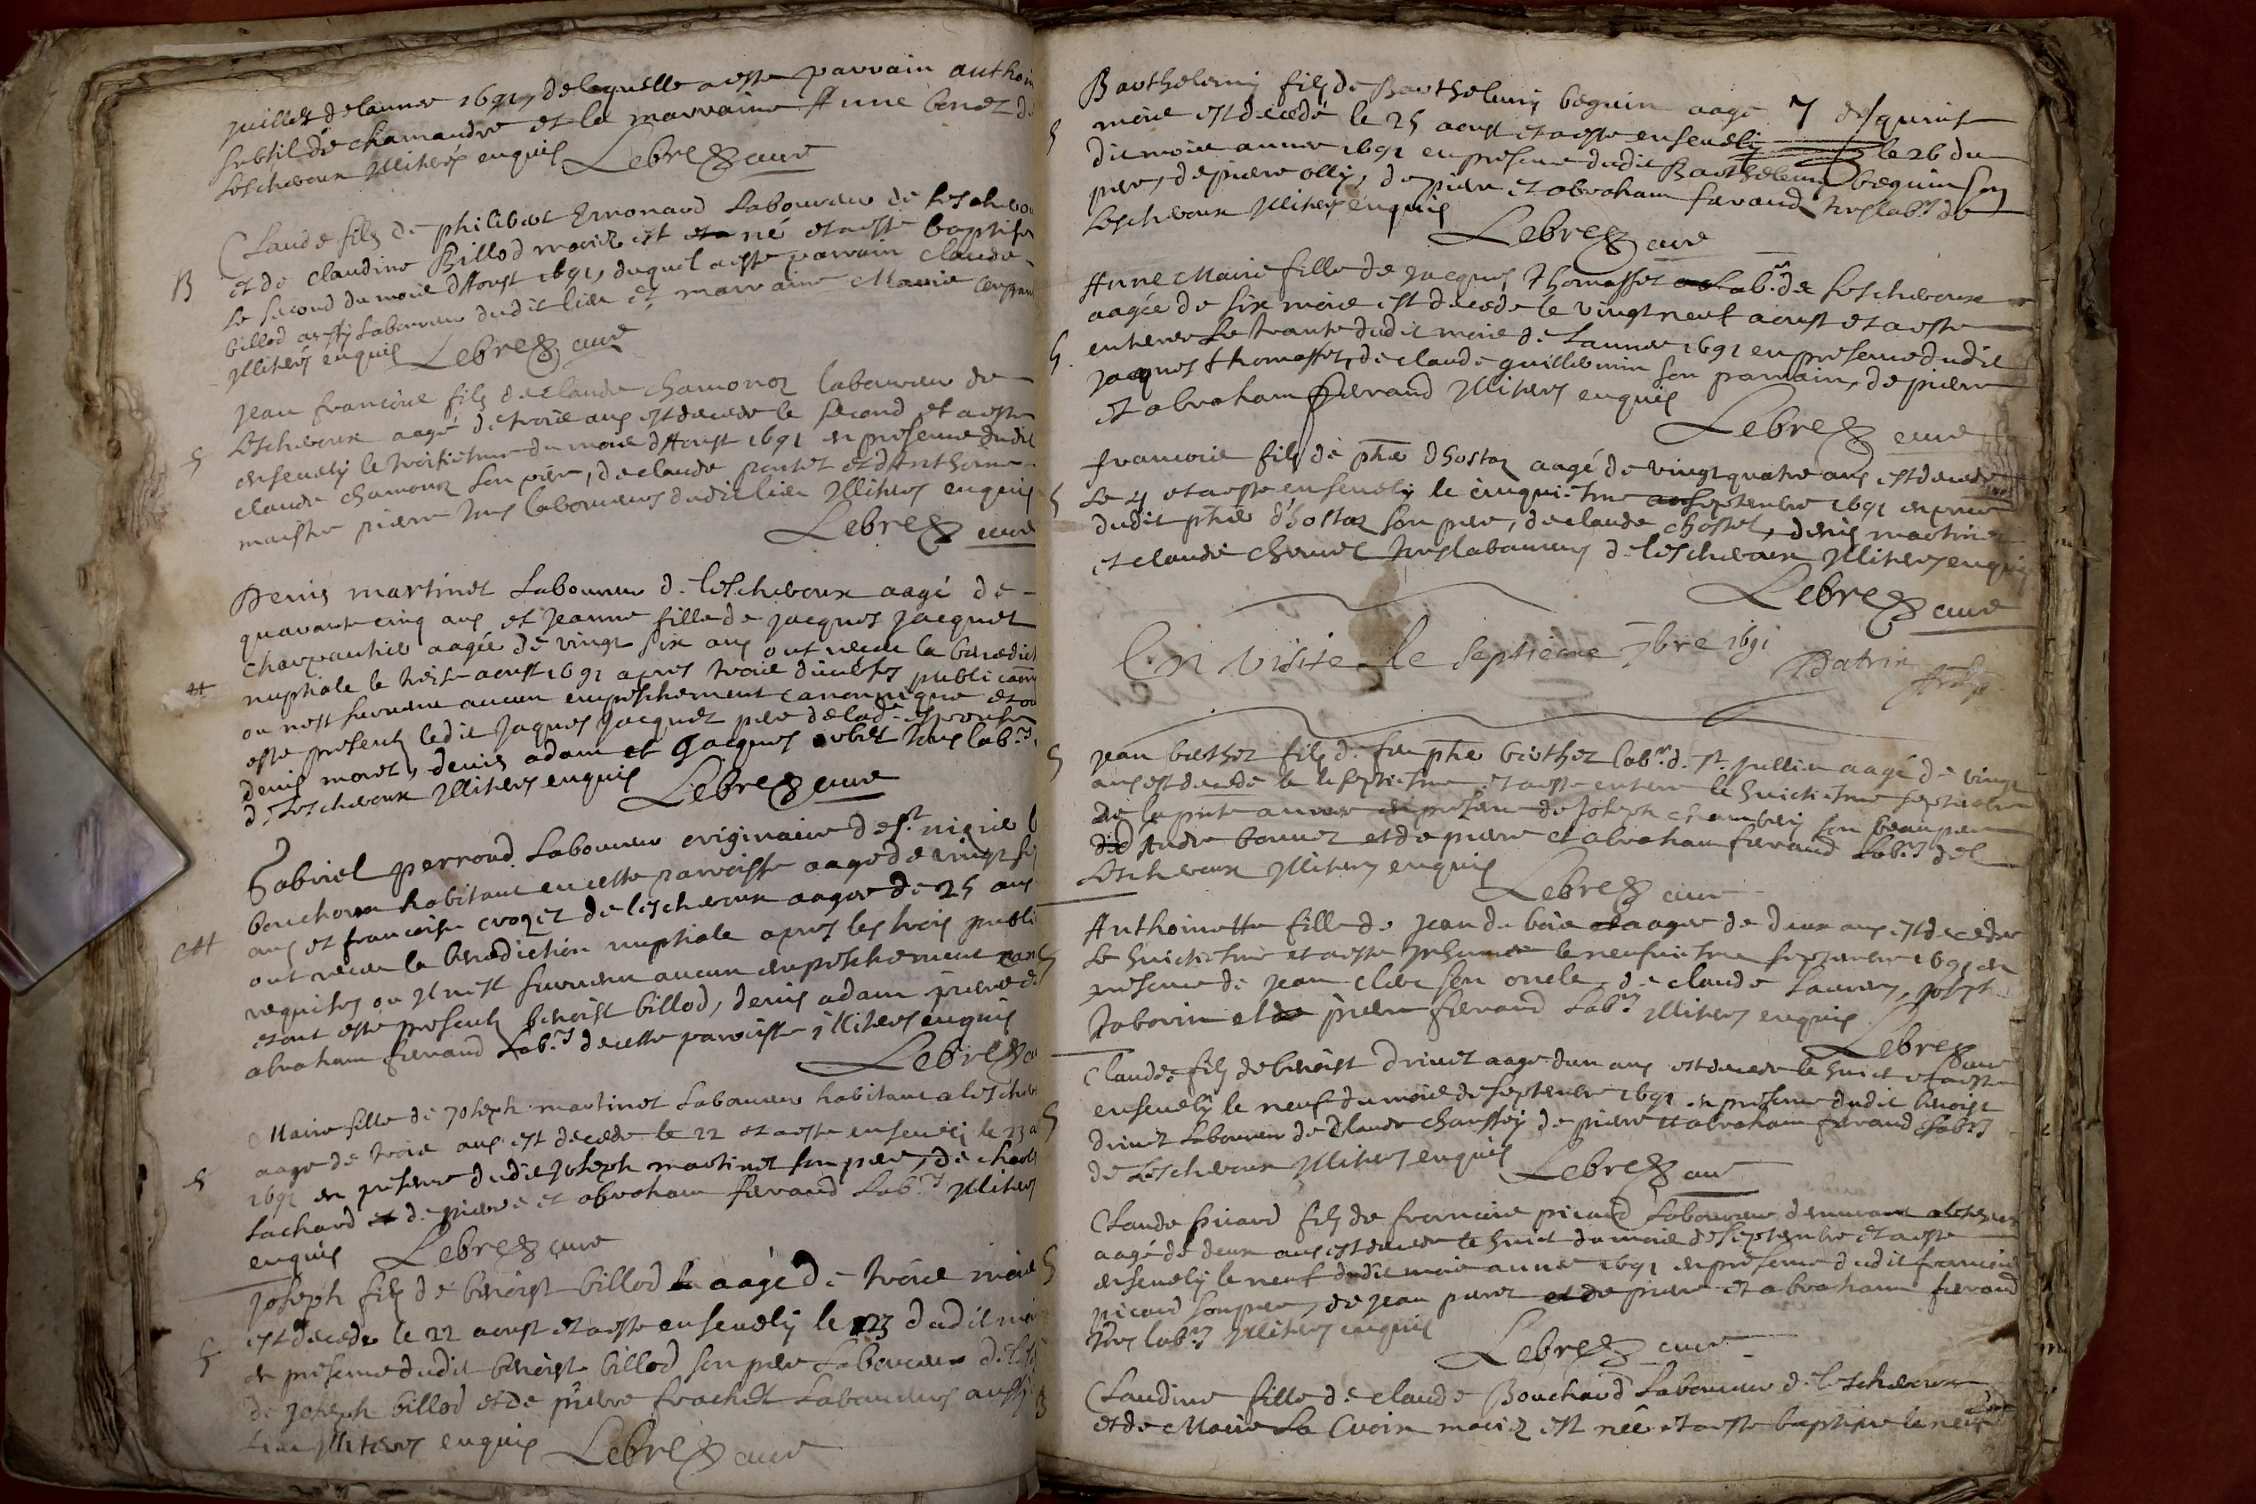 juillet de lannee 1691, de laquelle a esté parrain anthoi
subtil de chamandre et la marraine Anne benet d
Lescheroux Illiterés enquis Lebrez curé
B
Claude fils de philibert Emonard Laboureur de Lescherou
et de claudine Billod mariez est né et a esté baptisé
Le second du mois d'Aoust 1691, duquel a esté parrain claude
billod aussy Laboureur dudit lieu et marraine Marie
Illiterés enquis Lebrez curé
S
Jean francois fils de claude chamonoz laboureur de
Lescheroux aagé de trois ans est decede le second et a esté
ensevely le troisiesme du mois d'Aoust 1691 en presence dudit
claude chamonoz son pere, de claude pontet et d'Anthoine
maistre pierre tous laboureurs dudit lieu Illiteres enquis
Lebrez curé
Denis martinet Laboureur de lescheroux aagé de
quarante cinq ans et jeanne fille de jacques jacquet
charpentier aagée de vingt six ans ont receu la benedict
M
nuptiale le treise aoust 1691 apres trois dicelles publicaons
ou nest survenu aucun empeschement canonique et o
esté presents ledit jaques jacquet pere de lad. espouse
denis moret, denis adam et jacques tous lab.rs
de Lescheroux Illiteres enquis Lebrez curé
Gabriel perroud Laboureur originaire de st. nizier l
bouchoux habitant en cette parroisse aagé de vingt si
M
ans et francoise crozet de lescheroux aagee de 25 ans
ont receu la benediction nuptiale apres les trois publi
requises ou il n'est survenu aucun empeschement can
et ont esté presents benoist billod, denis adam pierre
abraham ferand Lab.rs de cette parroisse illiteres enquis
Lebrez cu
Marie fille de joseph martinet Laboureur habitant a lescher
S
aagé de trois ans est decede le 22 et a esté ensevely le 23 a
1691 en presence dudit joseph martinet son pere, de charl
Lachard et de pierre et abraham ferand Lab.rs Illiteres
enquis Lebrez curé
joseph fils de benoist billod aagé de trois mois
S
est decede le 22 aoust et a esté ensevely le 23 dudit moi
en presence dudit benoist billod son pere Laboureur de les
de joseph billod et de pierre frachet Laboureurs aussy
Lieu illiteres enquis Lebrez curé
Barthelemy fils de Barthelemy beguin aagé 7
S
mois est decedé le 25 aoust et a esté ensevely le 26 du
dit mois annee 1691 en presence dudit Barthelemy beguin son
pere, de pierre olly, de pierre et abraham ferand tous lab.rs de
Lescheroux Illiteres enquis
Lebrez curé
Anne Marie fille de jacques thomasset Lab.r de Lescheroux
aagée de six mois est decede le vingt neuf aoust et a esté
S
enteree Le trante dudit mois de Lannee 1691 en presence dudit
jacques thomasset, de claude guillemin son parrain, de pierre
et abraham ferand Illiteres enquis
Lebrez curé
francois fils de phe dhostaz aagé de vingt quatre ans est decede
S
Le 4 et a esté ensevely le cinquiesme septembre 1691 en
dudit phe d'hostaz son pere, de claude chossat, denis martinet
et claude tous laboureurs de lescheroux Illiteres enquis
Lebrez curé
En visite le septieme 7bre 1691
S
jean berthet fils de feu phe berthet lab.r de st. jullien aagé de vingt
ans est decedé le septiesme et a esté enterre le huictiesme septembre
de la pnte annee en presence de joseph chambery son beau pere
d'Andre bonnet et de pierre et abraham ferand Lab.rs de
Lescheroux Illiteres enquis
Lebrez curé
Anthoinette fille de jean de bois aagee de deux ans est decedee
S
Le huictiesme et a esté Inhumee le neufviesme septembre 1691 en
presence de jean clerc son oncle, de claude joseph
taborin et de pierre ferand Lab.rs Illiteres enquis
Lebrez curé
Claude fils de benoist drivet aagé d'un ans est decede le huict et a esté
S
ensevely le neuf du mois de septembre 1691 en presence dudit benoist
drivet Laboureur de Claude chaussey de pierre et abraham ferand Lab.rs
de Lescheroux Illiteres enquis
Lebrez curé
Claude picard fils de francois picard Laboureur demeurant
aagé de deux ans est decede le huict du mois de septembre et a esté
S
ensevely le neuf dudit mois annee 1691 en presence dudit francois
picard son pere, de jean puret et de pierre et abraham ferand
tous lab.rs Illiteres enquis
Lebrez curé
Claudine fille de claude Bouchard Laboureur de lescheroux
B
et de Marie La Croix mariez est née et a esté baptisee le neuf